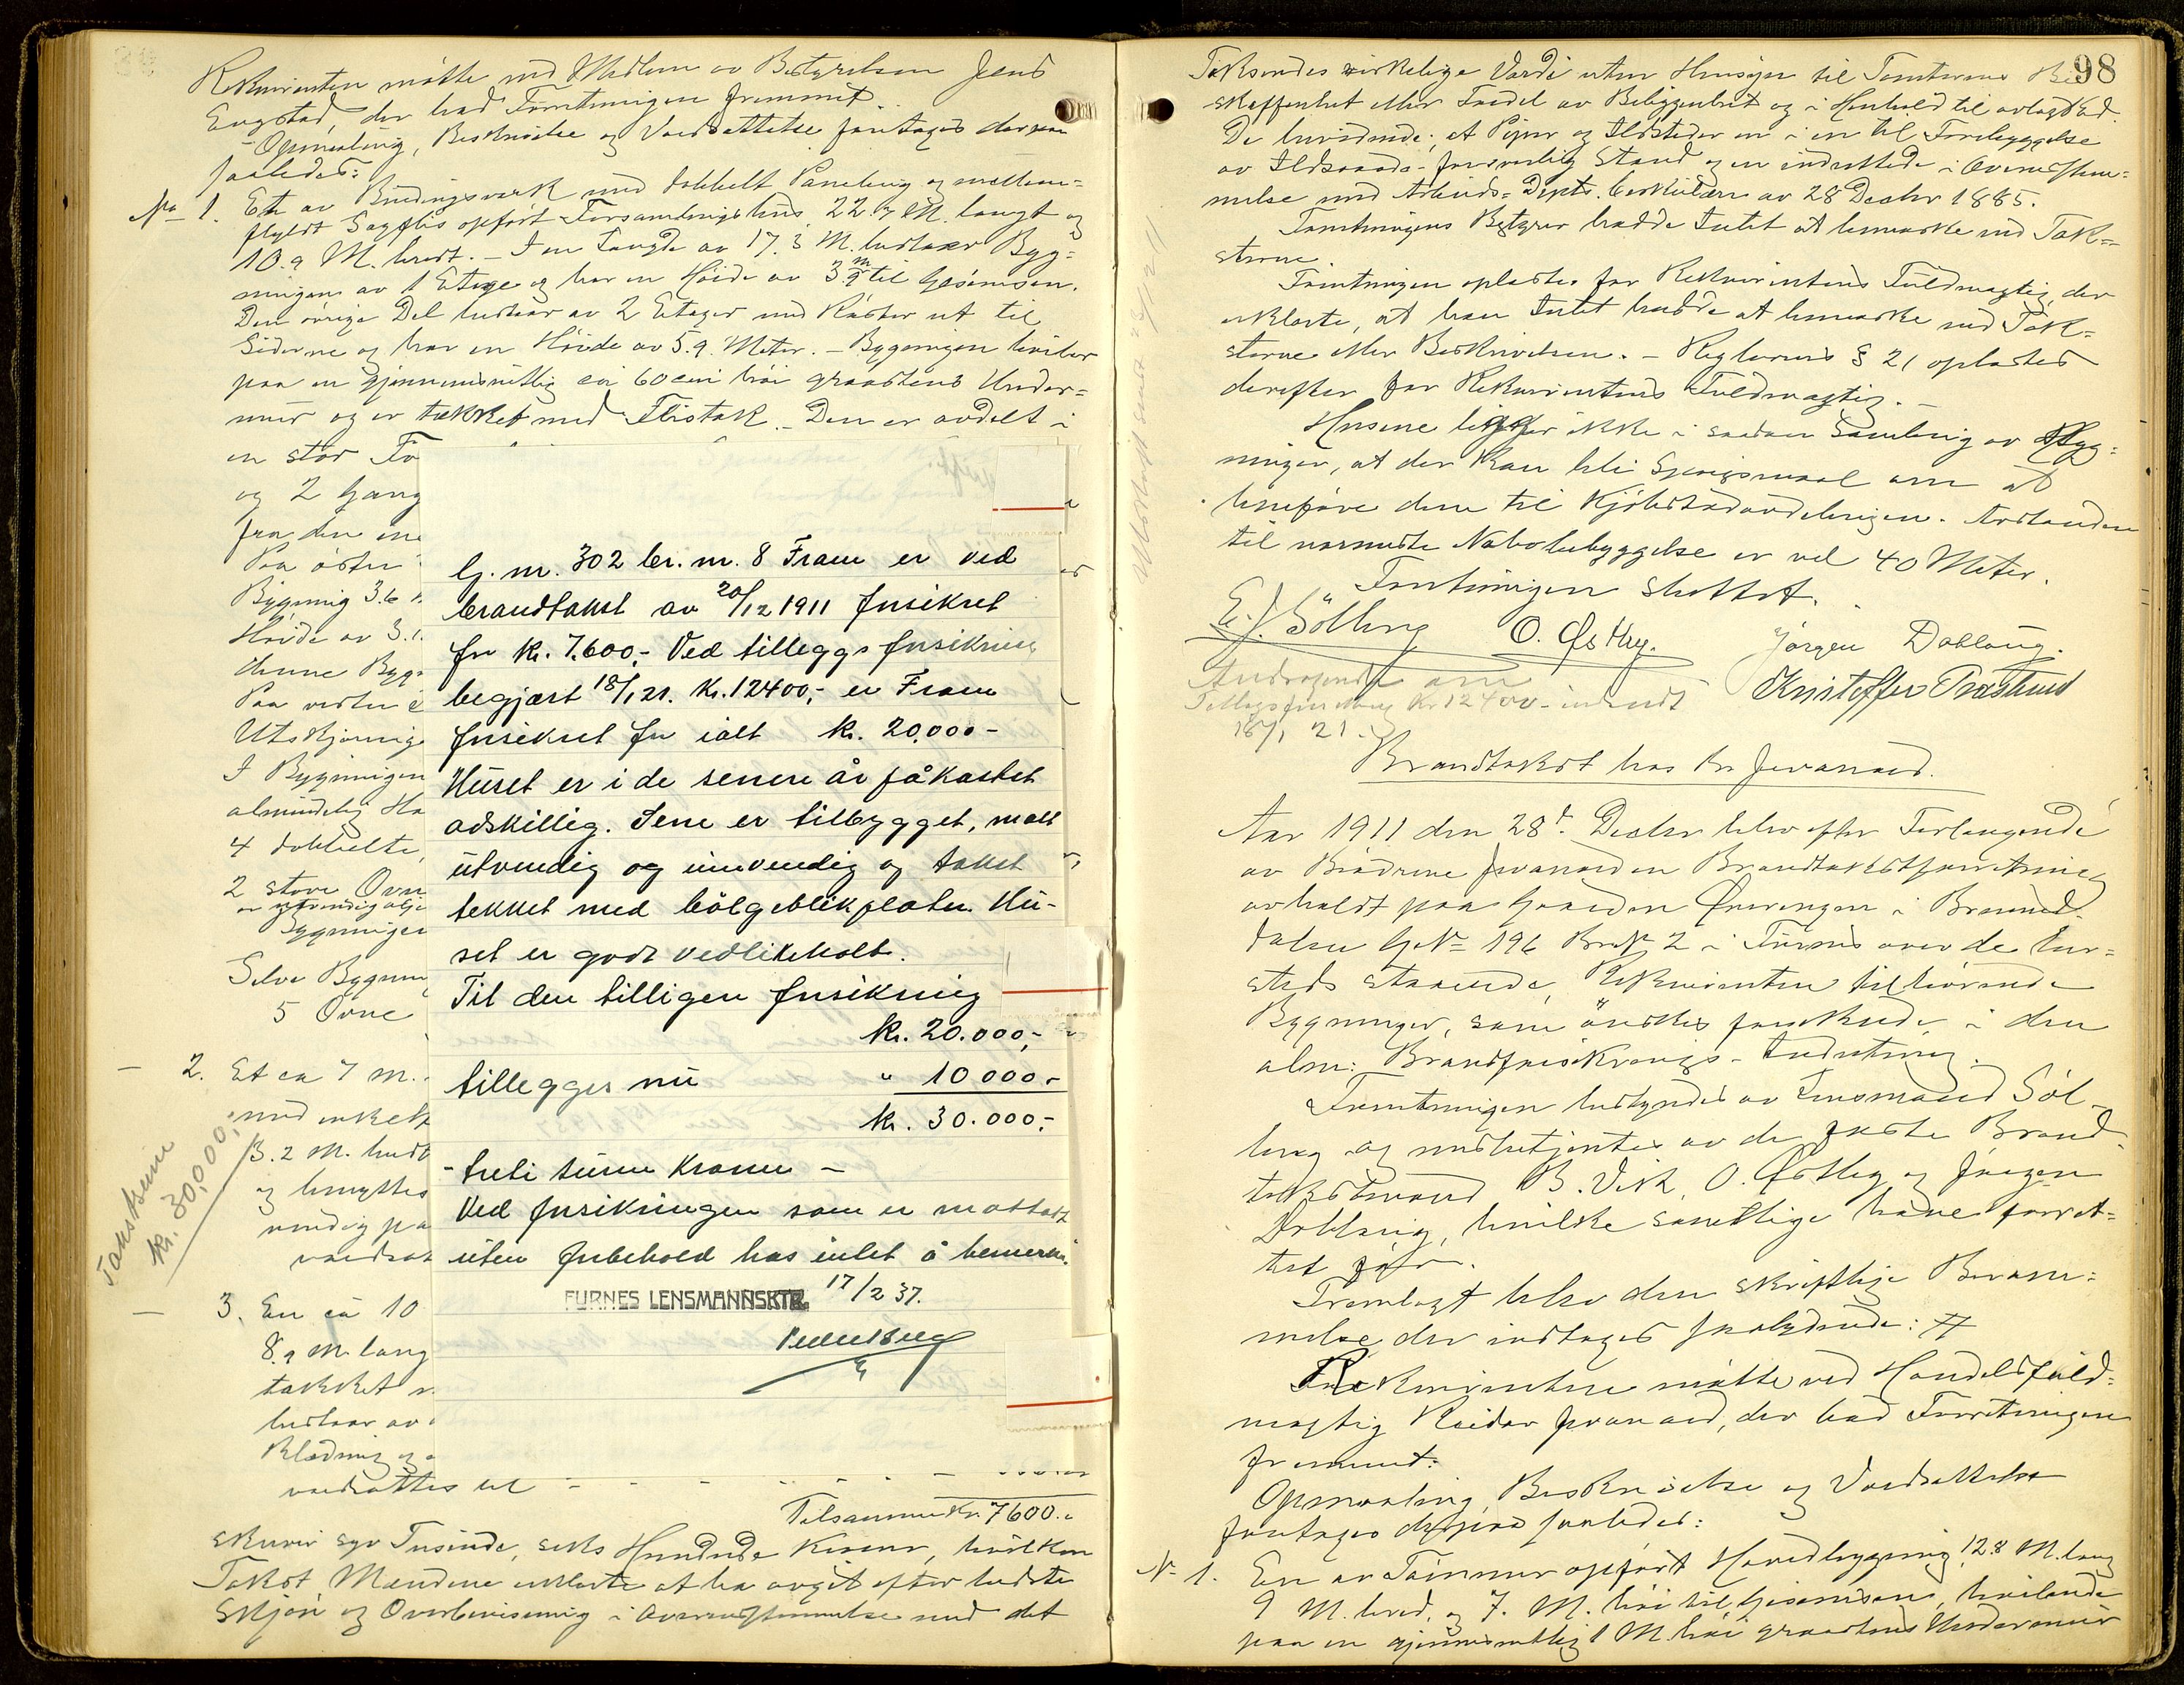 Rekvirenten møtte ved Medlem av Bestyrelsen Jens
Engstad, der bad Forretningen fremmet.
Opmaaling, Beskrivelse og Værdsættelse foretages derpaa
saaledes:
No 1. En av Bindingsverk med dobbelt Paneling og mellem=
flyldt Sagflis opført Forsamlingshus 22.7 M. langt og
10.9 M. bredt. – I en Længde av 17.3 M. bestaar Byg=
ningen av 1 Etage og har en Høide av 3.9 m til Gesimsen.
Den øvrige Del bestaar av 2 Etager med Røster ut til
Siderne og har en Høide av 5.9 Meter. – Bygningen hviler
paa en gjennemsnitlig ca 60 cm høi graastens Under=
mur og er tækket med Flistak. – Den er avdelt i
en stor Fo
og 2 Gang
fra den ene
Paa østre
Bygning 3.6
Høide av 3.1.
denne Bygn
Paa vestre
Utskjæring
I Bygningen
almindelig
4 dobbelte,
2 store Ovn
er utvendig olje
Bygningen
Selve Bygnin
5 Ovne
– 2. Et ca 7 m.
med enkelt
3.2 M. bredt
og benyttes
vendig pa
værdsat
Takstsum
kr. 30,000,-
– 3. En ca 10
8.9 M lang
tækket
bestaar av
Klædning og
værdsættes til - - - - - - - -
Tilsammen Kr. 7600.-
skriver syv Tusinde, seks Hundrede Kroner, hvilken
Takst Mændene erklærte at ha avgit efter bedste
Skjøn og Overbevisning i Overensstemmelse med det
G. nr. 302 br. nr. 8 Fram er ved
brandtakst av 20/12 1911 forsikret
for kr. 7.600,- Ved tilleggsforsikring
begjært 18/1 21. Kr. 12400,- er Fram
forsikret for ialt kr. 20.000-
Huset er i de senere år påkostet
adskillig. Scene er tilbygget, malt
utvendig og innvendig og taket
tekket med bölgeblikplater. Hu-
set er godt vedlikeholt.
Til den tilligere forsikring
kr. 20.000,-
tillegges nu " 10 000.-
kr. 30.000,-
- treti tusen kroner -
Ved forsikringen som er mottatt
uten forbehold has intet å bemerke.
FURNES LENSMANNSKTR. 17/2 37.
98
Taksendes virkelige Værdi uten Hensyn til Tomternes Be
skaffenhet eller Fordel av Beliggenhet og i Henhold til avlagt Ed.
De bevidnede, at Piper og Ildsteder er i en til Forebyggelse
av Ildsvaade forsvarlig Stand og er indrettede i Overensstem=
melse med Arbeids-Depts. Cirkulære av 28 Decbr 1885.
Forretningens Bestyrer hadde Intet at bemærke ved Tak=
sterne.
Forretningen oplæstes for Rekvirentens Fuldmægtig, der
erklærte, at han Intet hadde at bemærke ved Tak=
sterne eller Beskrivelsen. – Reglernes § 21 oplæstes
derefter for Rekvirentens Fuldmægtig. –
Husene ligger ikke i saadan Samling av Byg=
ninger, at der kan bli Spørgsmaal om at
henføre dem til Kjøbstadavdelingen. Avstanden
til nærmeste Nabobebyggelse er vel 40 Meter.
Forretningen sluttet.
E. J. Sölberg O. Østby. Jørgen Dobloug.
Kristoffer Præstrud
Andragende om
Tillægsforsikring Kr 12400 - indsendt
18/1 21.
Brandtakst hos Br Jevanord.
Aar 1911 den 28de Decbr blev efter Forlangende
av Brødrene Jevanord en Brandtakstforretning
avholdt paa Gaarden i Brumund-
dalen G No 196 Br No 2 i Furnes over de her=
steds staaende, Rekvirenten tilhørende
Bygninger, som ønskes forsikrede i den
alm: Brandforsikrings-Indretning.
Forretningen bestyredes av Lensmand Söl-
berg og medbetjentes av de faste Brand-
takstmænd B. Vik, O. Østby og Jørgen
Dobloug, hvilke samtlige have forret=
tet før.
Fremlagt blev den skriftlige Beram=
melse der indtages saalydende: #
Rekvirentene møtte ved Handelsfuld=
mægtig Reidar Jevanord, der bad Forretningen
fremmet.
Opmaaling, Beskrivelse og Værdsættelse
foretages derpaa saaledes:
No 1. En av Tømmer opført Hovedbygning 12.8 M. lang
9 M. bred, og 7. M. høi til Gesimsen, hvilende
paa en gjennemsnitlig 1 M. høi graastens Undermur